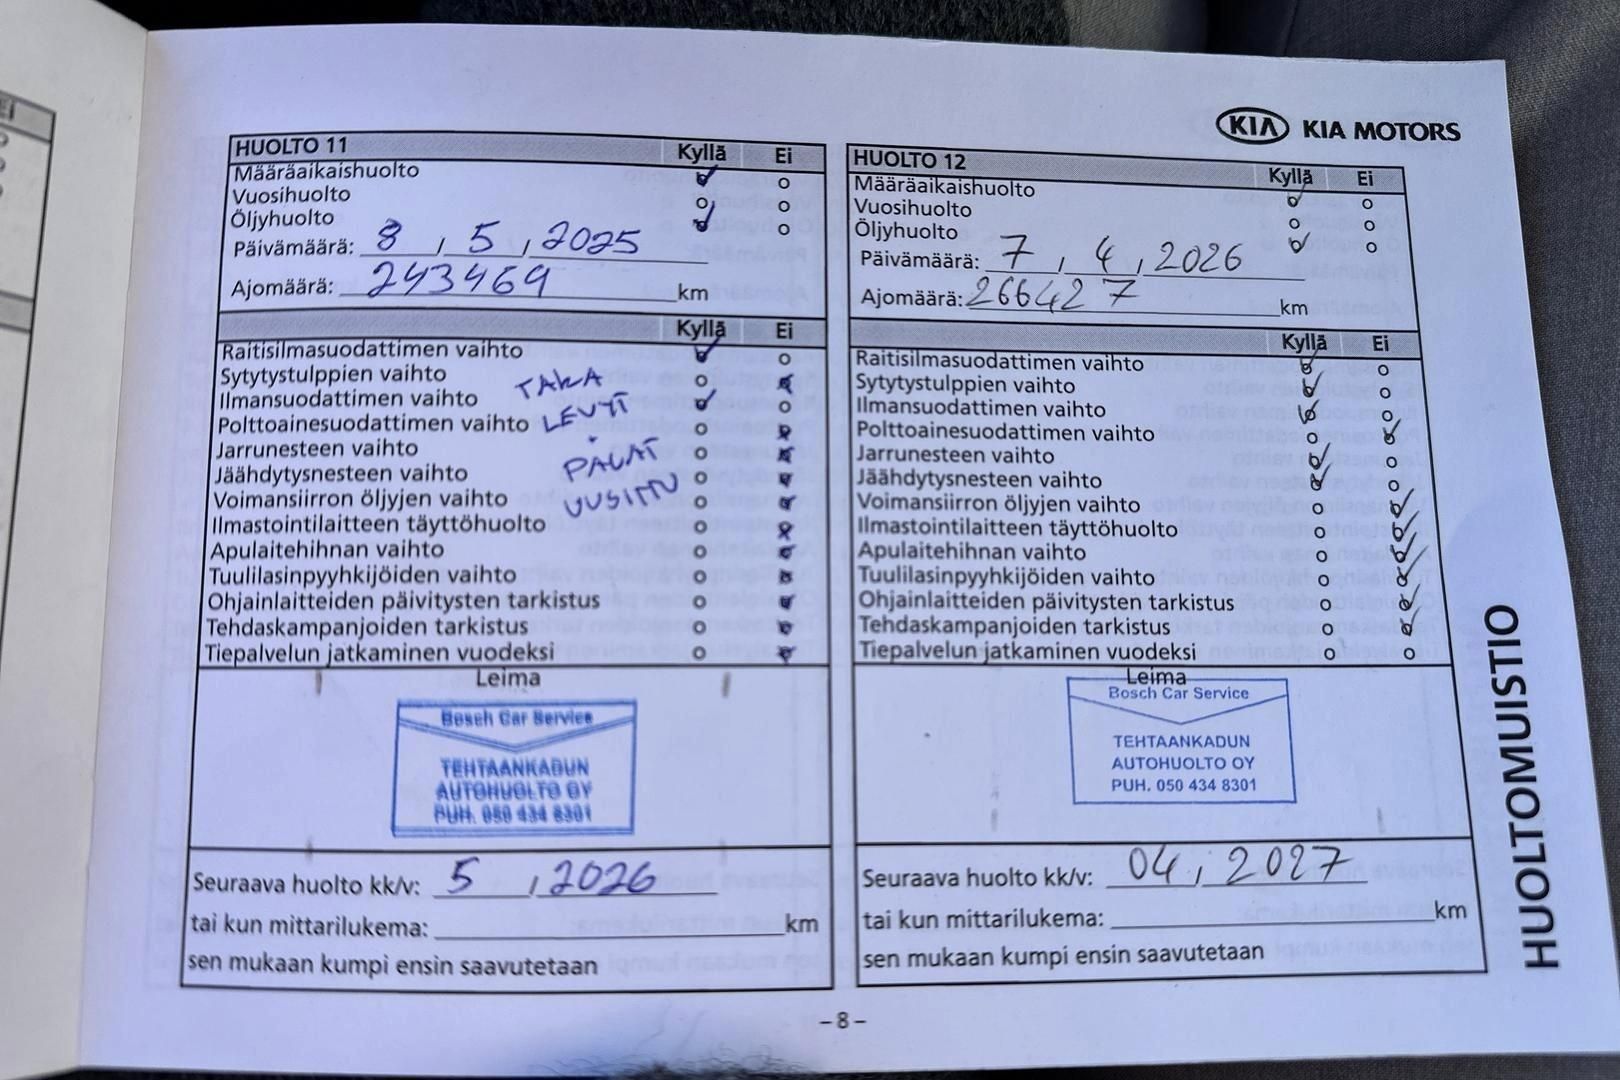 KIA KIA MOTORS
HUOLTO 11 Kyllä Ei
Määräaikaishuolto
Vuosihuolto
Öljyhuolto
Päivämäärä: 8 / 5 , 2025
Ajomäärä: 243469 km
Kyllä Ei
Raitisilmasuodattimen vaihto
Sytytystulppien vaihto
Ilmansuodattimen vaihto
Polttoainesuodattimen vaihto
Jarrunesteen vaihto
Jäähdytysnesteen vaihto
Voimansiirron öljyjen vaihto
Ilmastointilaitteen täyttöhuolto
Apulaitehihnan vaihto
Tuulilasinpyyhkijöiden vaihto
Ohjainlaitteiden päivitysten tarkistus
Tehdaskampanjoiden tarkistus
Tiepalvelun jatkaminen vuodeksi
TAKA
LEVYT
PALAT
UUSITTU
Leima
Bosch Car Service
TEHTAANKADUN
AUTOHUOLTO OY
PUH. 050 434 8301
Seuraava huolto kk/v: 5 / 2026
tai kun mittarilukema: km
sen mukaan kumpi ensin saavutetaan
HUOLTO 12 Kyllä Ei
Määräaikaishuolto
Vuosihuolto
Öljyhuolto
Päivämäärä: 7 / 4 , 2026
Ajomäärä: 266427 km
Kyllä Ei
Raitisilmasuodattimen vaihto
Sytytystulppien vaihto
Ilmansuodattimen vaihto
Polttoainesuodattimen vaihto
Jarrunesteen vaihto
Jäähdytysnesteen vaihto
Voimansiirron öljyjen vaihto
Ilmastointilaitteen täyttöhuolto
Apulaitehihnan vaihto
Tuulilasinpyyhkijöiden vaihto
Ohjainlaitteiden päivitysten tarkistus
Tehdaskampanjoiden tarkistus
Tiepalvelun jatkaminen vuodeksi
Leima
Bosch Car Service
TEHTAANKADUN
AUTOHUOLTO OY
PUH. 050 434 8301
Seuraava huolto kk/v: 04 / 2027
tai kun mittarilukema: km
sen mukaan kumpi ensin saavutetaan
HUOLTOMUISTIO
– 8 –